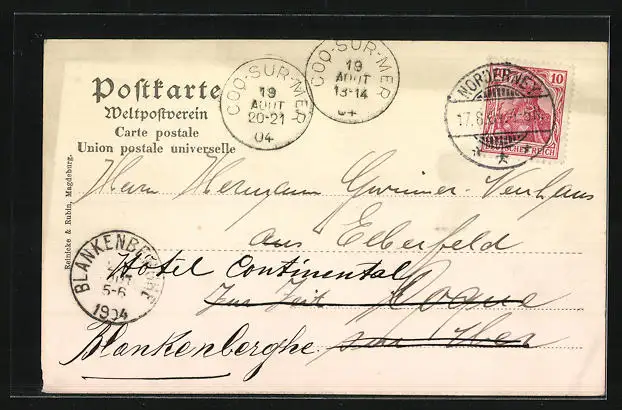 Postkarte
Weltpostverein
Carte postale
Union postale universelle
Reinicke & Rubin, Magdeburg.
COQ-SUR-MER
19
AOUT
20-21
04
COQ-SUR-MER
19
AOUT
13-14
04
NORDERNEY
17.8
10
DEUTSCHES REICH
Herrn Hermann
aus Elberfeld
Hôtel Continental
zur Zeit Coque
Blankenberghe sur Mer
BLANKENBERGHE
5-6
1904